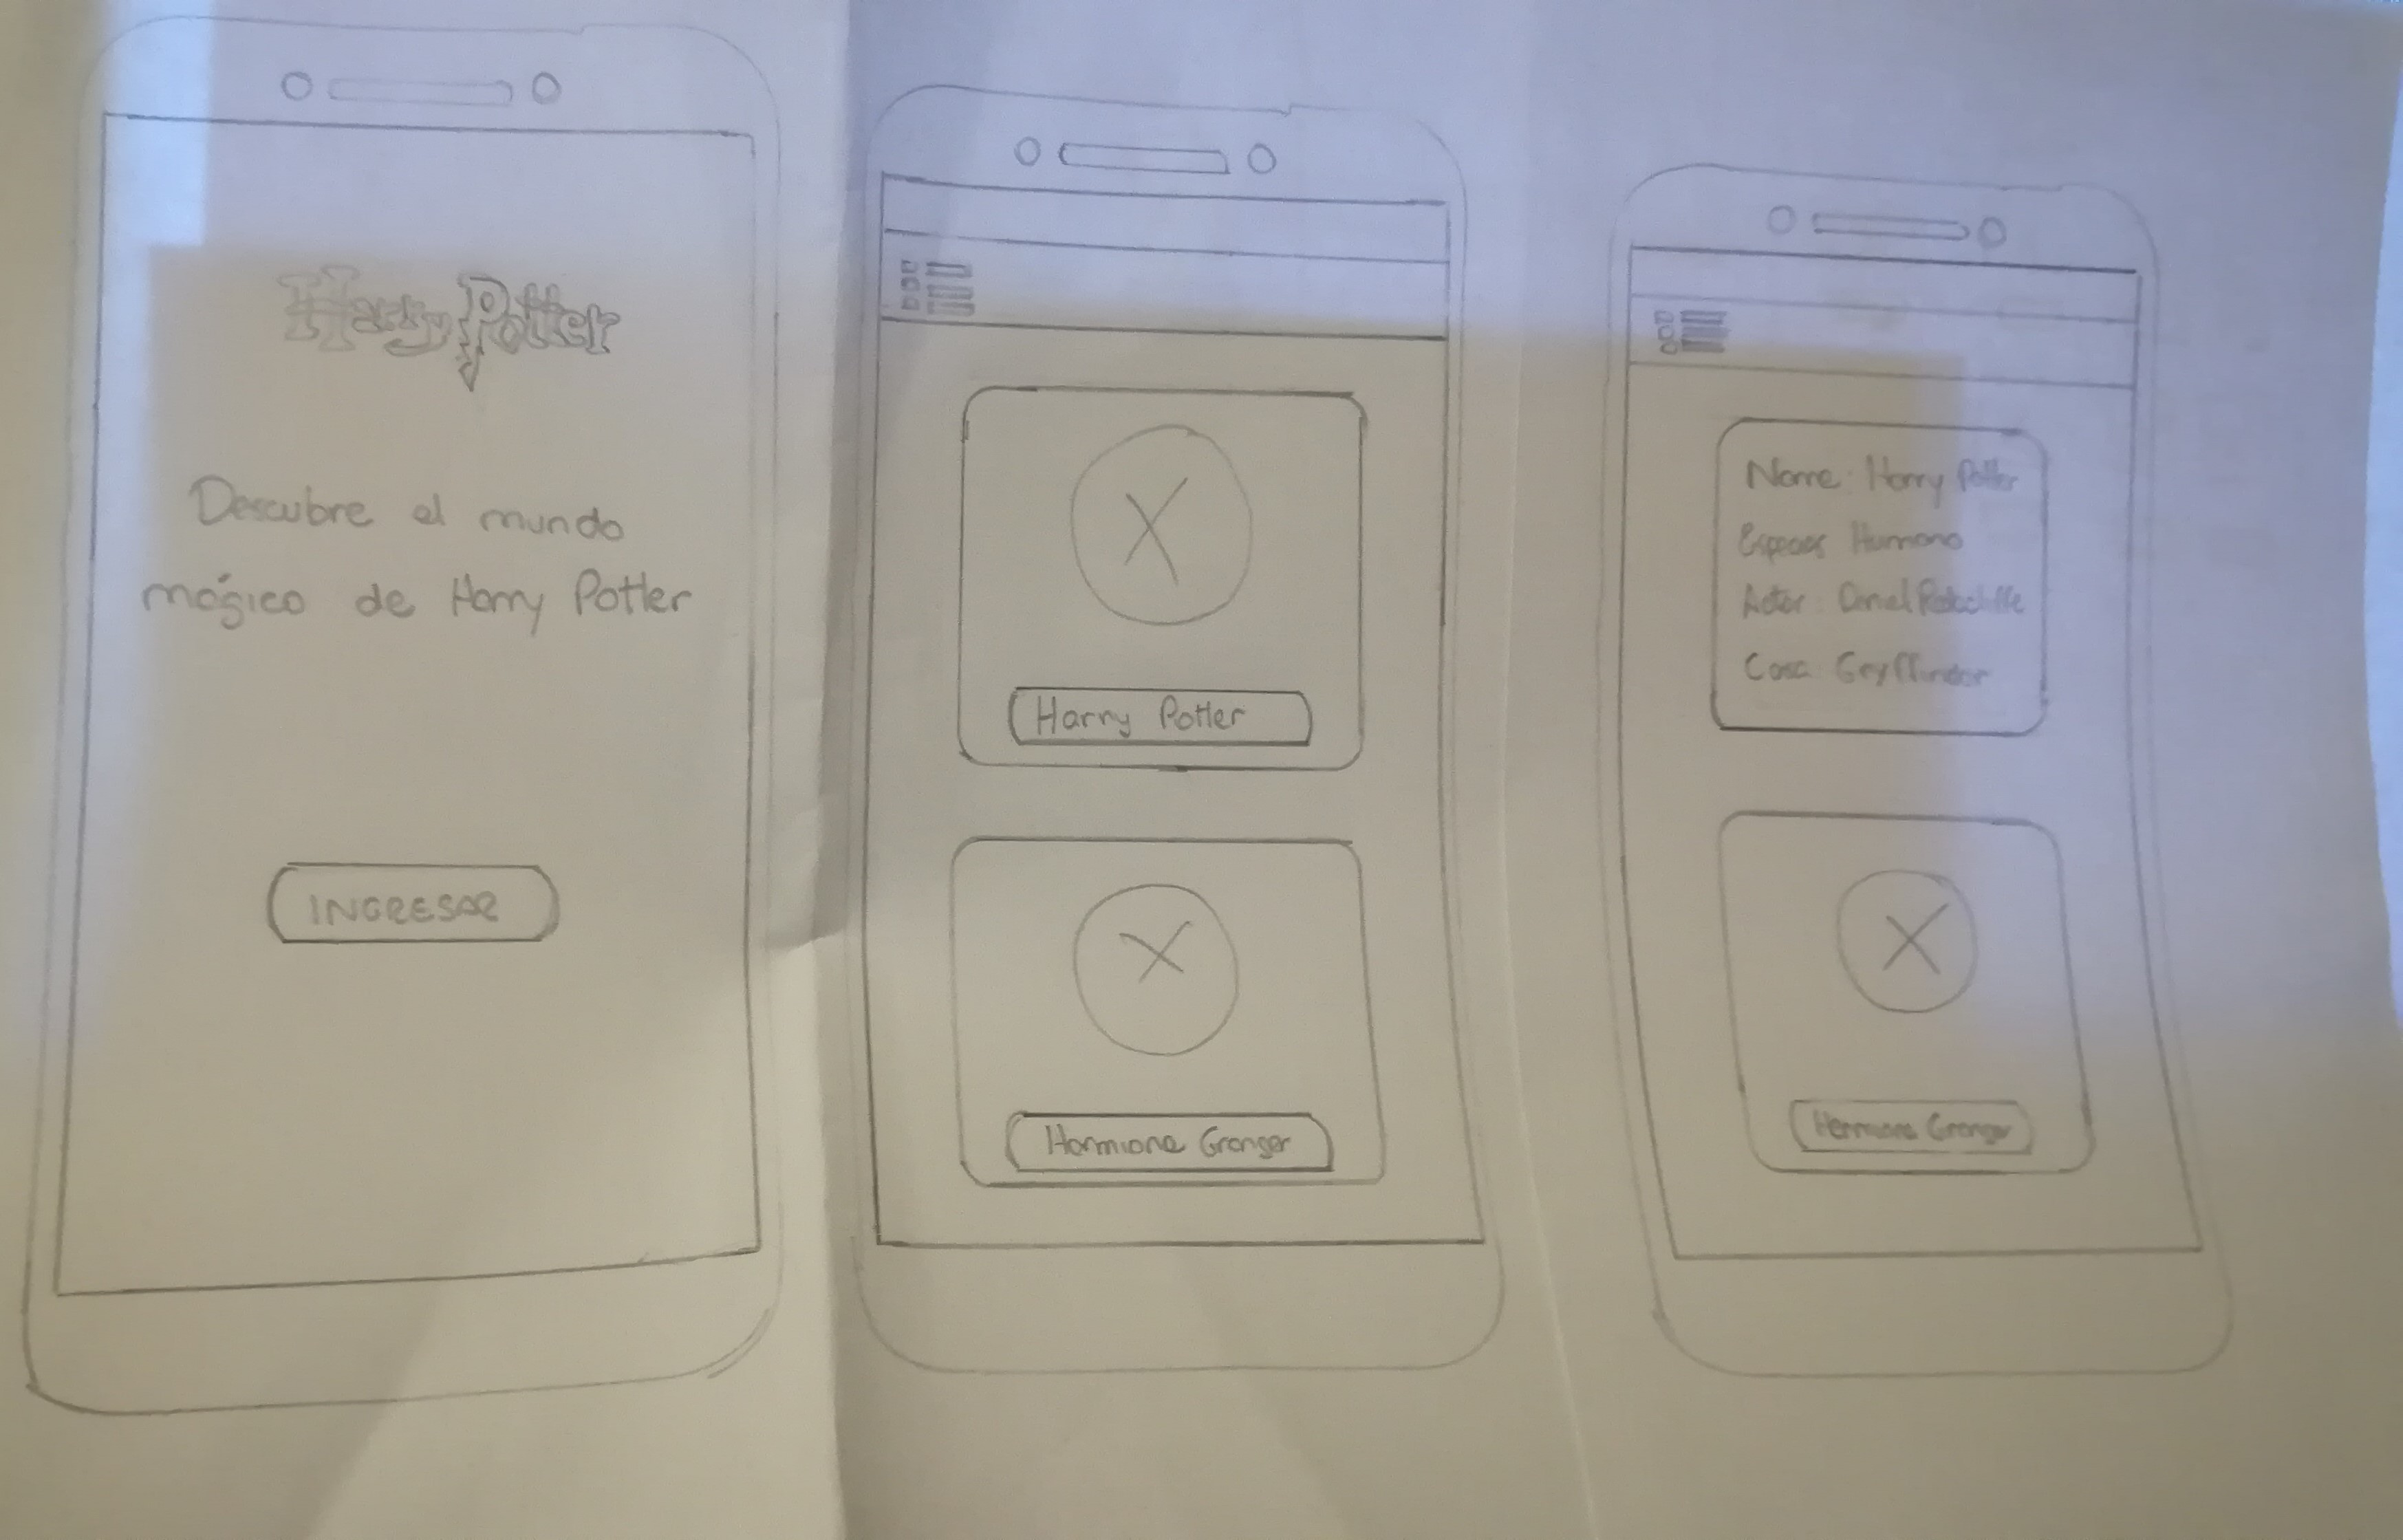 Harry Potter
Descubre el mundo
mágico de Harry Potter
INGRESAR
Harry Potter
Hermione Granger
Name: Harry Potter
Humano
Actor: Daniel Radcliffe
Casa: Gryffindor
Hermione Granger